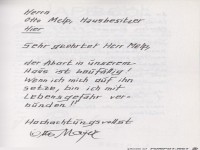 Herrn
Otto Melps, Hausbesitzer
Hier
Sehr geehrter Herr Melps,
der Abort in unserem
Haus ist baufällig!
Wenn ich mich auf ihn
setze, bin ich mit
Lebensgefahr ver-
bunden!!
Hochachtungsvollst
Otto Meyer